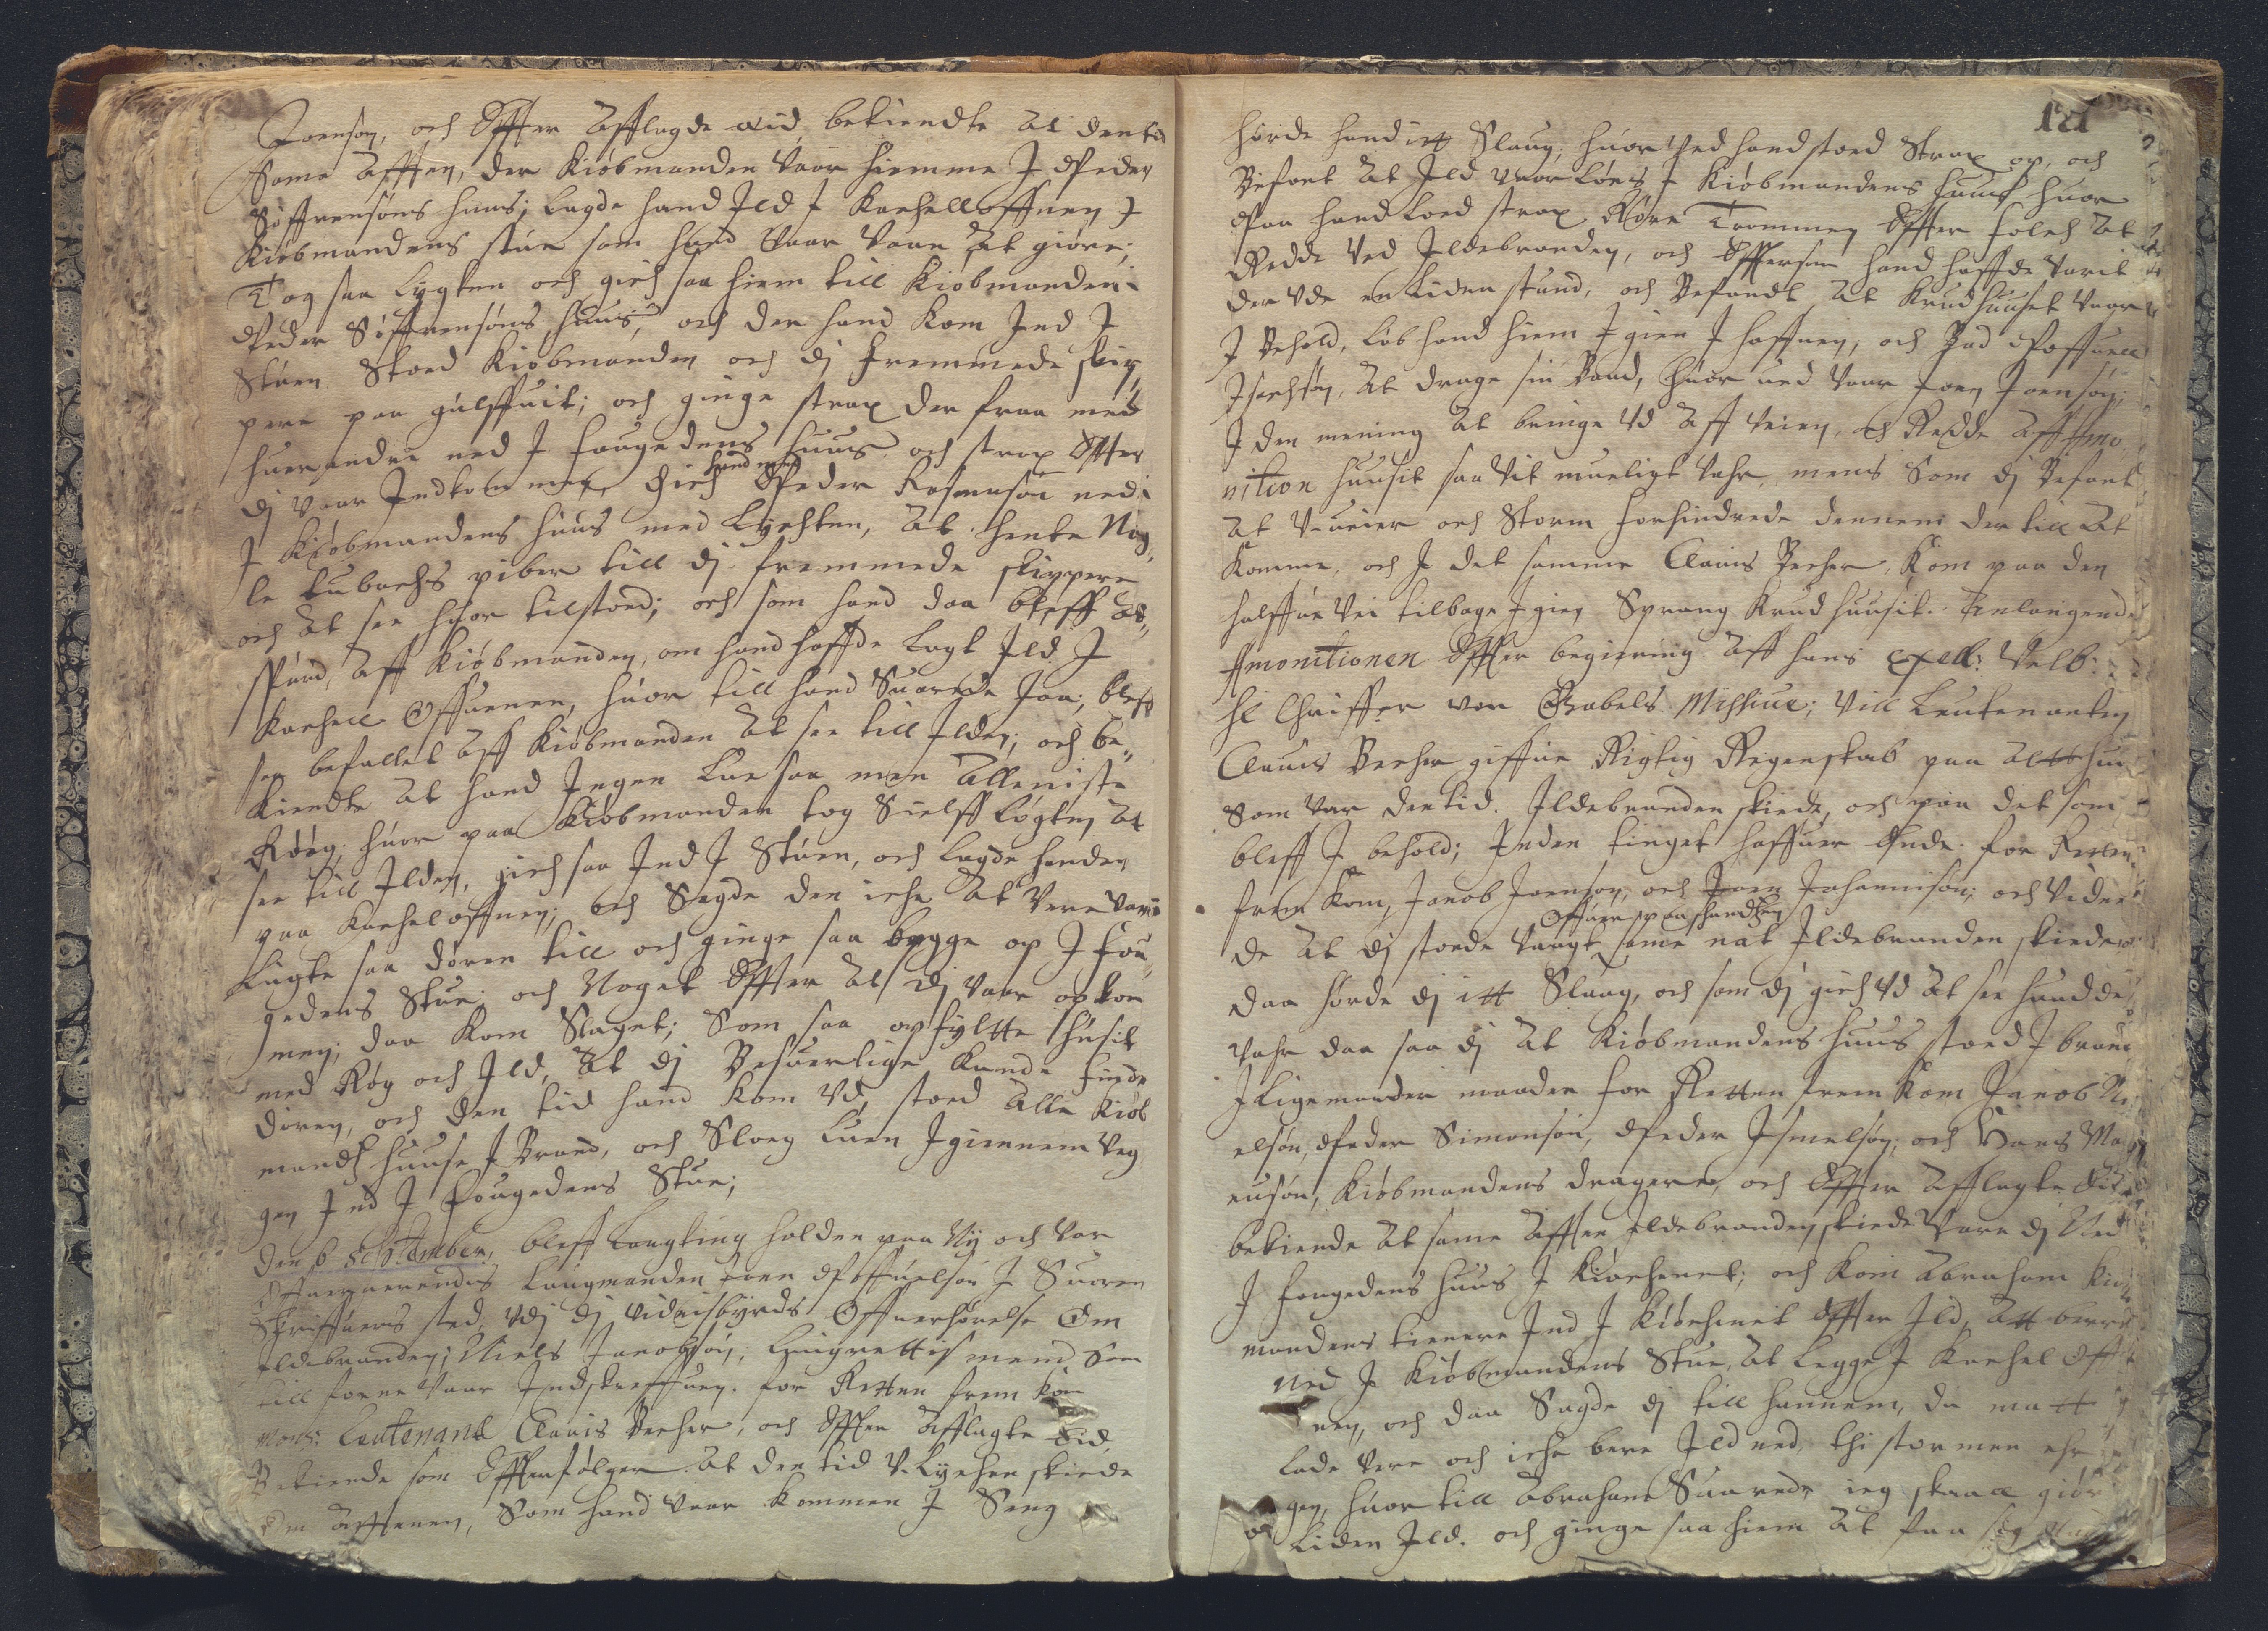 Joensøn, och Effter Afflagde eid, bekiendte at den tid
Same Afften, der Kiøbmanden vaar hiemme I Peder
Søffrensøns huus; lagde hand Ild I Kachelloffnen I
Kiøbmandens stue som hand vaar vaan at giøre;
Tog saa lygten och gich saa hiem till Kiøbmanden i
Peder Søffrensøns huus, och der hand kom Ind I
Stuen Stoed Kiøbmanden och dj fremmede skip
pere paa gulffuit; och ginge strax der fraa med
huerandre ned I fougedens huus, och strax Effter
dj vaar Indkommen, gich hand och Peder Rasmusøn ned i
I Kiøbmandens huus med Lychten, at hente Nog,,
le tubachs piber till dj fremmede skippere
och at see huor tilstoed; och som hand daa bleff ad,,
spurd, aff Kiøbmanden, om hand haffde lagt Ild I
Kachell Offuenen, huor till hand Suarede Jaa; bleff
saa befallet aff Kiøbmanden at see till Ilden; och be,,
kiendte at hand Ingen Lue saa men alleniste
Røøg, huor paa Kiøbmanden tog Sielff løgten at
see till Ilden, gich saa Ind I Stuen, och lagde handen
paa Kacheloffnen; och Sagde den iche at vere varm
lugte saa døren till och ginge saa begge op I fou,,
gedens Stue; och Noget Effter at dj vaar opkom
men; daa kom Slaget; Som saa opfyltte husit
med Røg och Ild, at dj Besuerlige kunde finde
døren, och den tid hand kom vd, stoed alle Kiøb
mandz huuse I Brand, och Sloeg luen Igiennem veg
gen Ind I fougedens Stue;
Den 6 September, bleff laugting holden paa Ny och var
Offuerverendis laugmanden Joen Poffuelsøn I Suoren
Skriffuers sted, vdj dj vidnisbyrds Offuerhørelse Om
Ildebranden; Niels Jacobsøn, Laugrettis mend Som
till forne vaar Indskreffuen. for Retten frem kom
Mons: Leutenant Claus Becher, och Effter Afflagte Eid,
Bekiende som Effterfølger. At den tid V-lychen skiede
om afftenen, Som hand vaar kommen I Seng
121
hørde hand itt Slaug, huor ved hand stoed Strax op, och
Befant at Ild vaar løes I Kiøbmandens huus huor
Paa hand loed strax Røre Trommen Effter folch at
Redde ved Ildebranden, och Effersom hand haffde varit
der vde en liden stund, och Befandt at Krudhuuset vaar
I Behold, løb hand hiem I gien I haffnen, och Bad Poffuell
Isachsøn, at drage sin Baad, huor ved vaar Joen Joensøn;
I den mening at bringe vd aff veien, och Redde aff Amo
nition huusit saa vit mueligt vahr, mens Som dj Befant
at V-ueier och Storm forhindrede dennem der till at
komme, och I det samme Claus Becher, kom paa den
halffue vei tilbage Igien Sprang Krudhuusit. Anlangende
Amonitionen Effter begiering aff hans Exell: Velb:
Hl Chriffer von Gabels Missiue; vill Leutenanten
Claues Becher giffue Rigtig Regenskab paa altt hui
Som var den tid. Ildebranden skiede, och paa det som
bleff I behold; Inden tinget haffuer Ende. for Retten
frem kom, Jacob Joensøn, och Joen Johannisøn; och vidne
de at dj stoede vaagt Offuen paa schandtzen same nat Ildebranden skiede
daa hørde dj itt Slaug, och som dj gich vd at see huad de
vahr daa saa dj at Kiøbmandens huus stoed I brand
I Ligemaader maader for Retten frem kom Jacob Ni
elsøn, Peder Simonsøn, Peder Ismelsøn; och Hans Ma
ensøn, Kiøbmandens dragere, och Effter Afflagte Eid
bekiende at same Afften Ildebranden skiede vare dj Ned
I fougedens huus I Kiøchenet; och kom Abraham Kiøb
mandens tienere Ind I Kiøchenet Effter Ild, att berre
ned I Kiøbmandens Stue, at legge I Kachel Off
nen, och daa Sagde dj till hannem, du matt
lade vere och iche bere Ild ned, thi stormen ehr
gen, huor till Abraham Suarede ieg skaall giør
liden Ild. och ginge saa hiem at faa sig